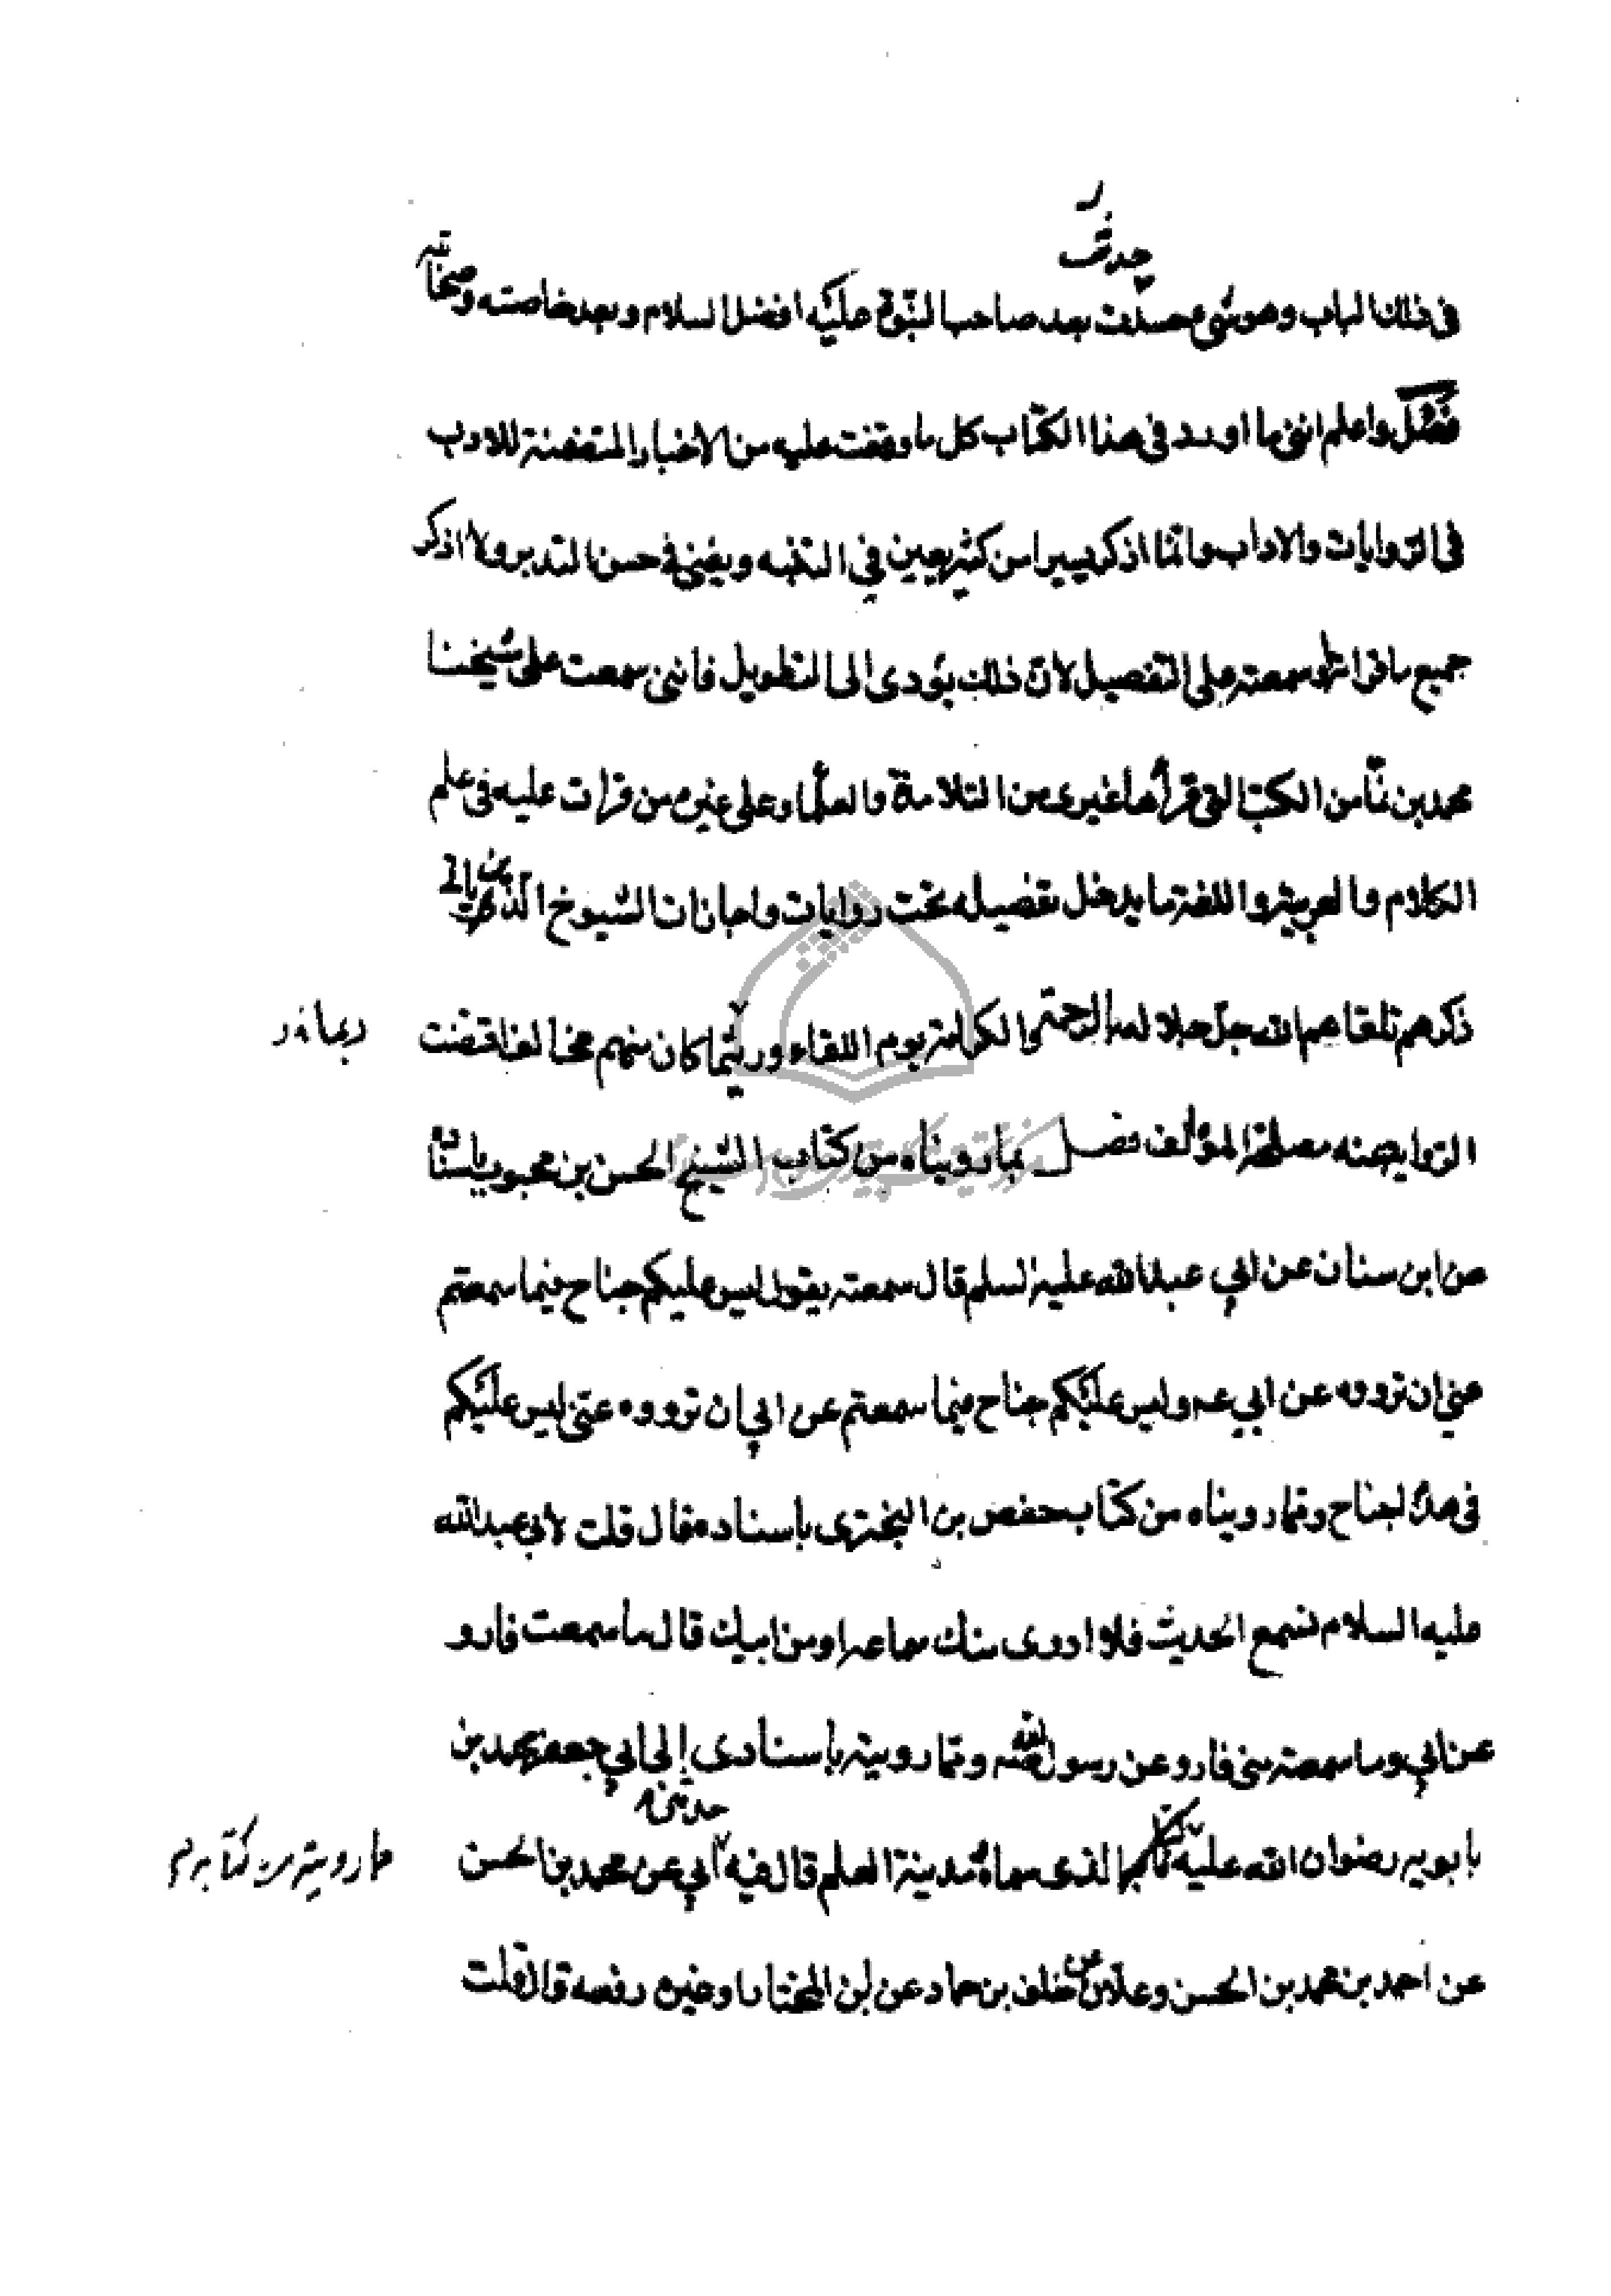 حدثت
في ذلك الباب وهو شيء حدث بعد صاحب النبوة عليه افضل السلام وبعد خاصته وصحابته
فصل واعلم انني ما اورد في هذا الكتاب كل ما وقفت عليه من الاخبار المتضمنة للادب
في الروايات والاداب وانما اذكر يسيرا من كثير يعين في التنبه ويغني في حسن التدبر ولا اذكر
جميع ما قراته او سمعته على التفصيل لان ذلك يؤدي الى التطويل فانني سمعت على شيخنا
محمد بن نما من الكتب التي قراها غيري من التلامذة والعلماء وعلى غيره من قرات عليه في علم
الكلام والعربية واللغة ما يدخل تفصيله تحت روايات واجازات الشيوخ الذين ياتي
ذكرهم تلقاهم الله جل جلاله بالرحمة والكرامة يوم اللقاء وربما كان منهم مخالفا قضت
الرواية عنه مصلحة المؤالف فصل مما رويناه من كتاب الشيخ الحسن بن محبوب باسناده
عن ابن سنان عن ابي عبد الله عليه السلم قال سمعته يقول ليس عليكم جناح فيما سمعتم
عني ان ترووه عن ابي ع وليس عليكم جناح فيما سمعتم عن ابي ان ترووه عني ليس عليكم
في هذا جناح ومما رويناه من كتاب حفص بن البختري باسناده قال قلت لابي عبد الله
عليه السلام نسمع الحديث فلا ادري منك سماعه او من ابيك قال ما سمعت فارو
عن ابي وما سمعته مني فارو عن رسول الله ومما رويته باسنادي إلى ابي جعفر محمد بن
حدثني
بابويه رضوان الله عليه الذي سماه مدينة العلم قال فيه ابي عن محمد بن الحسن
مما رويته من كتابه
عن احمد بن محمد بن الحسن وعلان عن خلف بن حماد عن ابن المختار او غيره رفعه قال قلت